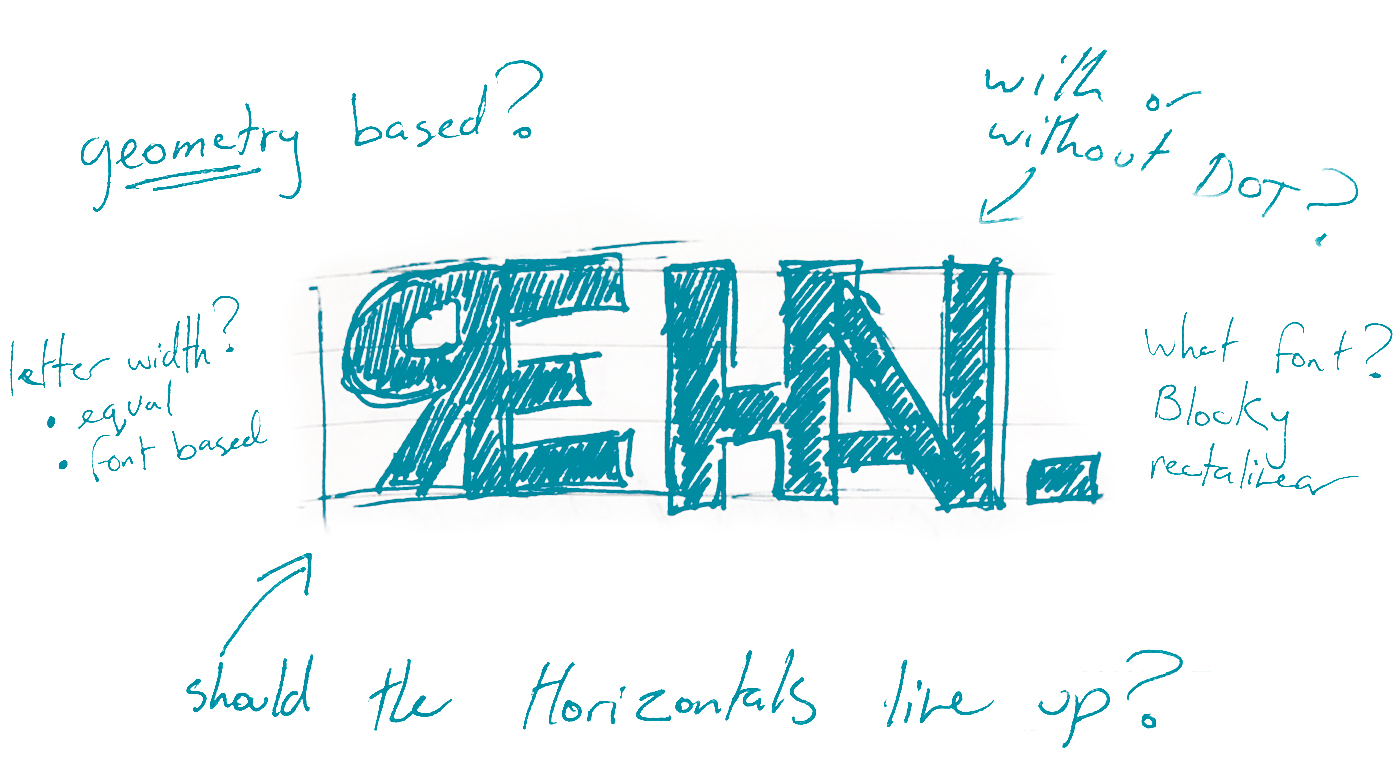 geometry based?
with or
without DOT?
ЯEHN.
letter width?
• equal
• font based
What font?
Blocky
rectalinear
should the Horizontals line up?